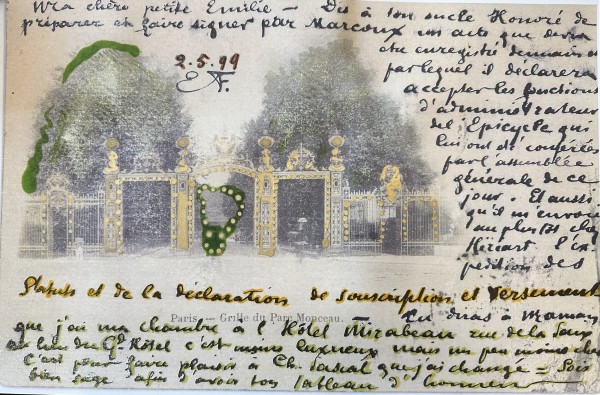 Ma chère petite Emilie — Dis à ton oncle Honoré de
préparer et faire signer par Marcoux un acte que devra
être enregistré demain et
par lequel il déclarera
accepter les fonctions
d'administrateur
de l'Epicycle qui
lui ont été conférées
par l'assemblée
générale de ce
jour. Et aussi
qu'il m'envoie
au plus tôt chez
l'ex
pédition des
2.5.99
Statuts et de la déclaration de souscription et versement
Paris. — Grille du Parc Monceau.
Tu diras à Maman
que j'ai ma chambre à l'Hôtel Mirabeau rue de la Paix
au lieu du Gd Hôtel c'est moins luxueux mais un peu moins cher
c'est pour faire plaisir à Ch. Pascal que j'ai changé = Sois
bien sage afin d'avoir ton Tableau d'honneur